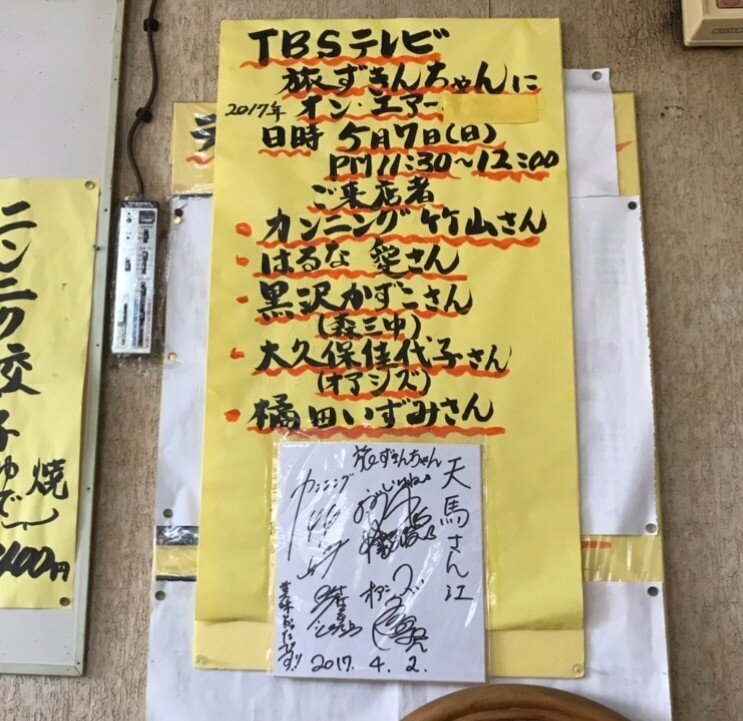 TBSテレビ
旅ずきんちゃんに
2017年 オン・エアー
日時 5月7日(日)
PM11:30〜12:00
ご来店者
・カンニング竹山さん
・はるな愛さん
・黒沢かずこさん
(森三中)
・大久保佳代子さん
(オアシズ)
・橘田いずみさん
天馬さん江
旅ずきんちゃん
カンニング
竹山
美味かったです!!
2017.4.2.
ニンニク餃子
焼
ゆで
400円